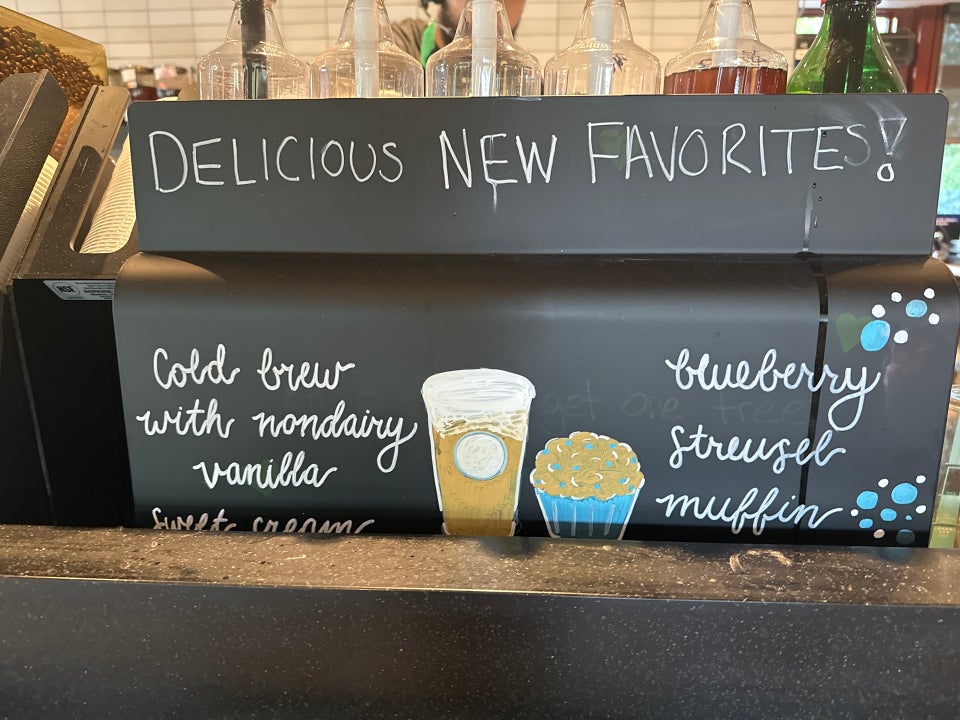 DELICIOUS NEW FAVORITES!
Cold brew
with nondairy
vanilla
sweet cream
blueberry
streusel
muffin
get one free
NSF